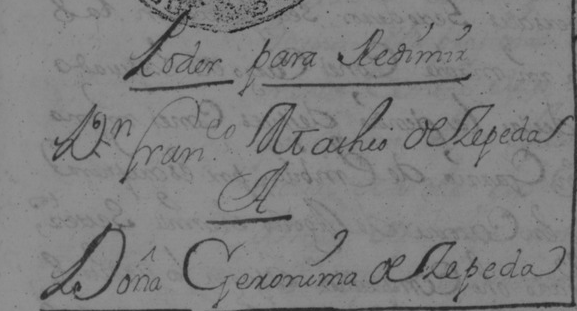 Poder para Redimir
Dn. Franco. Matheo de Zepeda
A
Doña Geronima de Zepeda